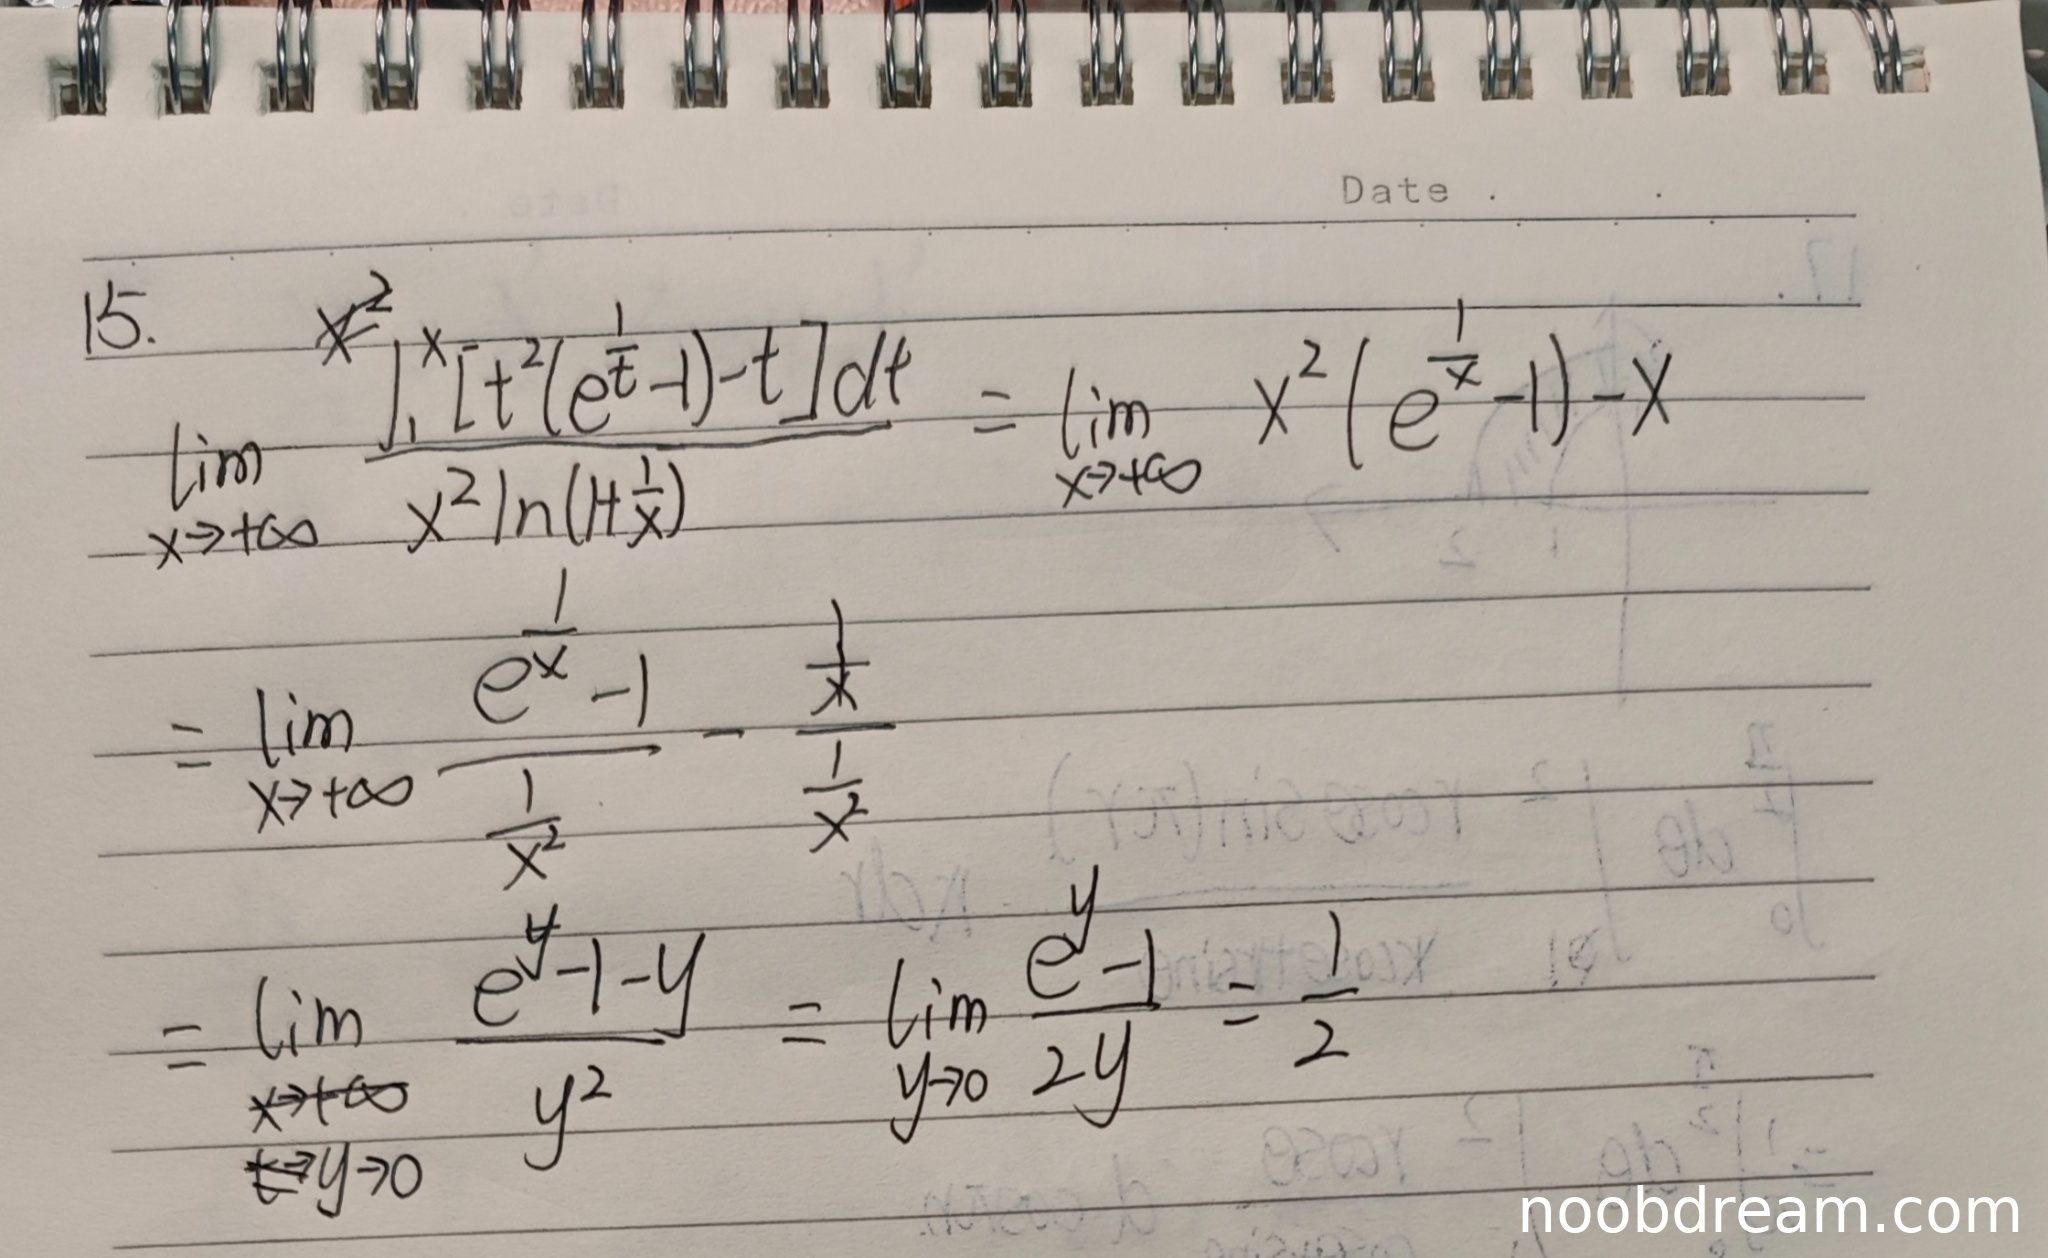 Date .   .
15. x²
lim x→+∞ ∫₁ˣ [t²(e^(1/t) -1) - t] dt / x² ln(1+1/x) = lim x→+∞ x²(e^(1/x) -1) - x
= lim x→+∞ (e^(1/x) -1)/(1/x²) - (1/x)/(1/x²)
= lim x→+∞ t→ y→0 (e^y -1-y)/y² = lim y→0 (e^y -1)/2y = 1/2
noobdream.com